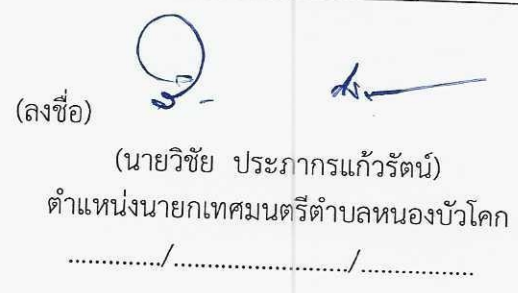 (ลงชื่อ)
(นายวิชัย ประภากรแก้วรัตน์)
ตำแหน่งนายกเทศมนตรีตำบลหนองบัวโคก
............./........................../................